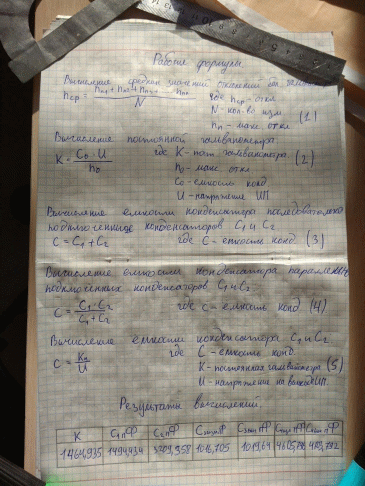 Рабочие формулы
Вычисление средних значений отклонений бал. гальван.
nср = nп1 + nп2 + nп3 ... nпк / N где nср - откл
N - кол-во изм (1)
nп - макс откл
Вычисление постоянной гальванометра
K = C0 · U / n0 где K - пост гальванометра (2)
n0 - макс откл
C0 - емкость конд
U - напряжение ИП
Вычисление емкости конденсатора последовательно
подключенных конденсаторов C1 и C2
C = C1 + C2 где C - емкость конд (3)
Вычисление емкости конденсатора параллельно
подключенных конденсаторов C1 и C2
C = C1 · C2 / C1 + C2 где C - емкость конд (4)
Вычисление емкости конденсатора C1 и C2
C = Kn / U где C - емкость конд.
K - постоянная гальванометра (5)
U - напряжение на выходе ИП.
Результаты вычислений:
K C1 пФ C2 пФ
1464,935 1494,934 1016,705